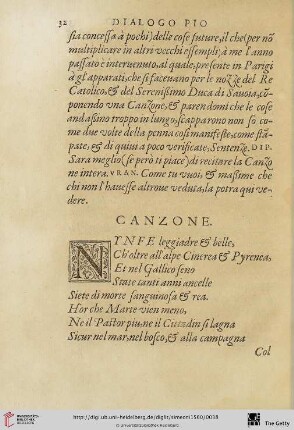 32 DIALOGO PIO
sia concessa à pochi) delle cose future, il che (per nō
multiplicare in altro vecchi essempli) à me l'anno
passato è interuenuto, al quale, presente in Parigi
à gl'apparati, che si faceuano per le nozze del Re
Catolico, & del Serenissimo Duca di Sauoia, cō-
ponendo vna Canzone, & parendomi che le cose
andassino troppo in lungo, scapparono non so co-
me due volte della penna cosi manifeste, come stā-
pate, & di quiui a poco verificate, Sentenze. DIP.
Sara meglio (se però ti piace) di recitare la Canzo
ne intera. VRAN. Come tu vuoi, & massime che
chi non l'hauesse altroue veduta, la potra qui ve-
dere.
CANZONE.
NYNFE leggiadre & belle,
Ch'oltre all'alpe Cinerea & Pyrenea,
Et nel Gallico seno
State tanti anni ancelle
Siete di morte sanguinosa & rea.
Hor che Marte vien meno,
Ne il Pastor piu, ne il Cittadin si lagna
Sicur nel mar, nel bosco, & alla campagna
Col
http://digi.ub.uni-heidelberg.de/diglit/simeoni1560/0038
© Universitätsbibliothek Heidelberg
UNIVERSITÄTS-
BIBLIOTHEK
HEIDELBERG
The Getty